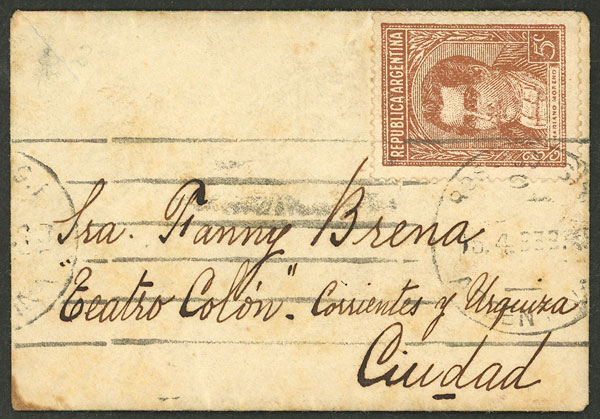 5c
REPUBLICA ARGENTINA
MARIANO MORENO
Sra. Fanny Brena
Teatro Colón". Corrientes y Urquiza
Ciudad